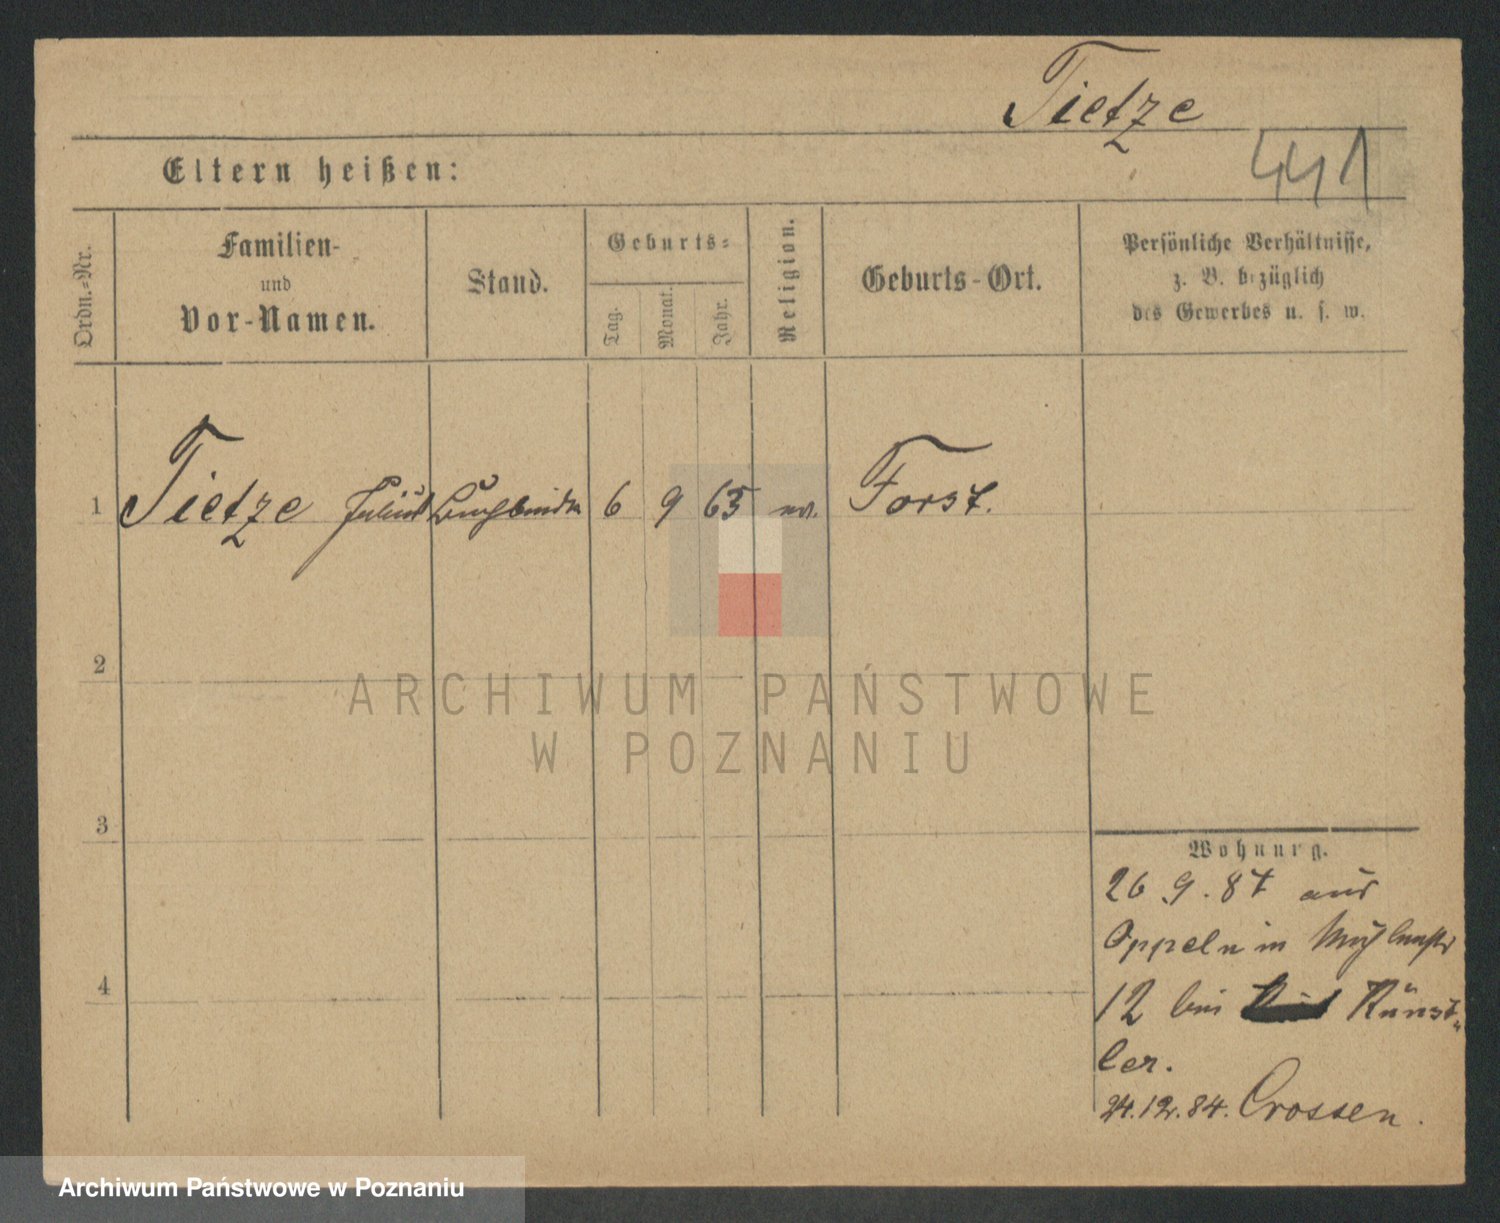 Tietze
441
Eltern heißen:
Ordn.-Nr.
Familien-
und
Vor-Namen.
Stand.
Geburts-
Tag.
Monat.
Jahr.
Religion.
Geburts-Ort.
Persönliche Verhältnisse,
z. B. bezüglich
des Gewerbes u. s. w.
1 Tietze Julius Buchbinder 6 9 65 ev. Forst.
2
3
4
Wohnung.
26.9.84 aus
Oppeln in Mühlenstr
12 bei Künst-
ler.
24.12.84. Crossen.
ARCHIWUM PAŃSTWOWE
W POZNANIU
Archiwum Państwowe w Poznaniu